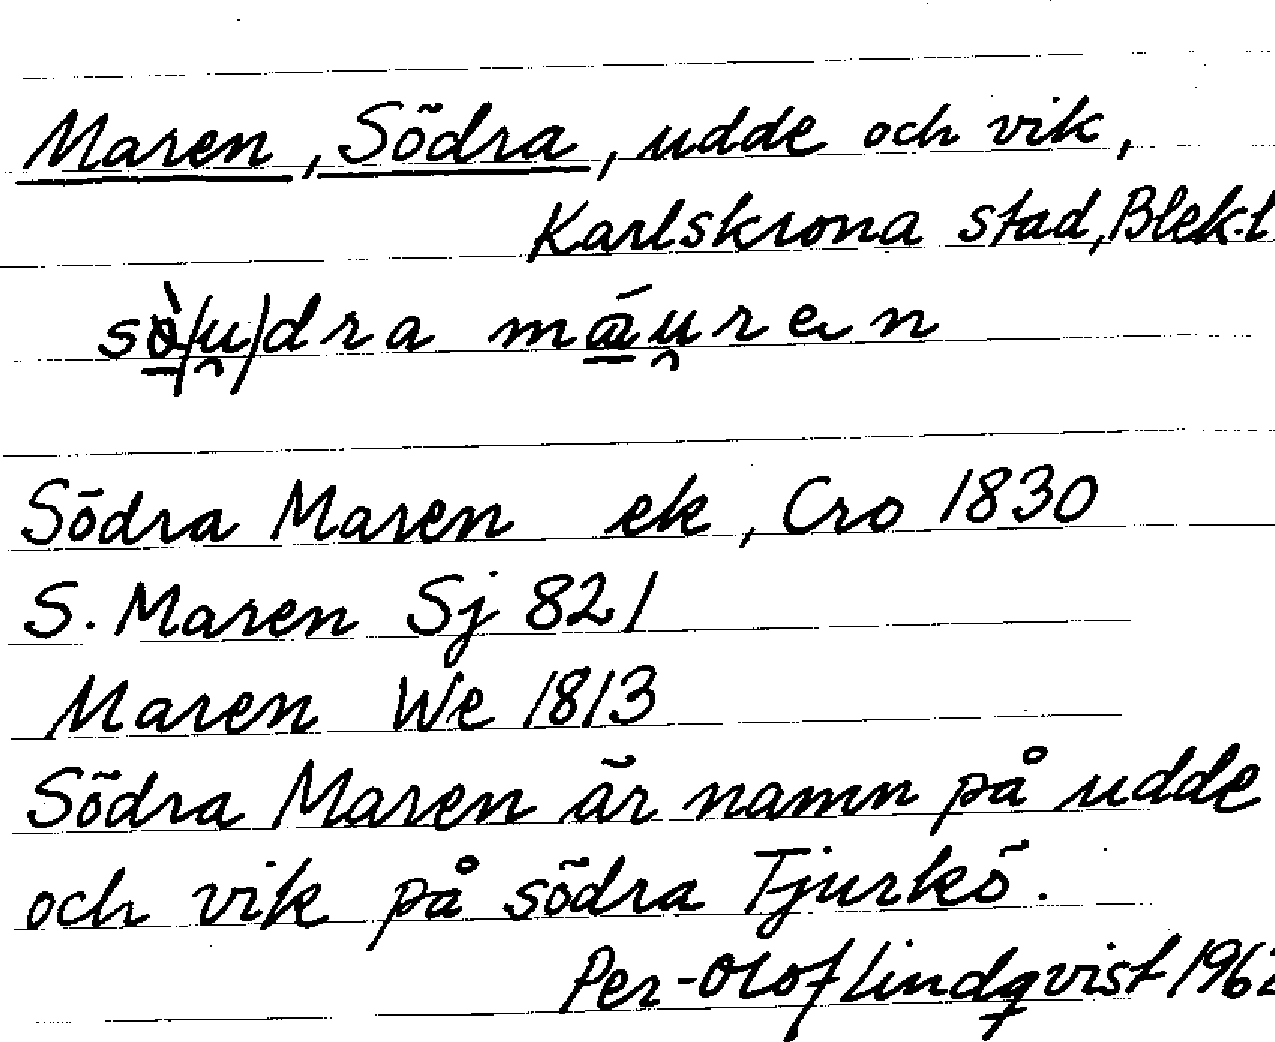 Maren, Södra, udde och vik,
Karlskrona stad, Blek.l
sö̀(u̯)dra máu̯ren
Södra Maren ek, Cro 1830
S. Maren Sj 821
Maren We 1813
Södra Maren är namn på udde
och vik på södra Tjurkö.
Per-Olof Lindqvist